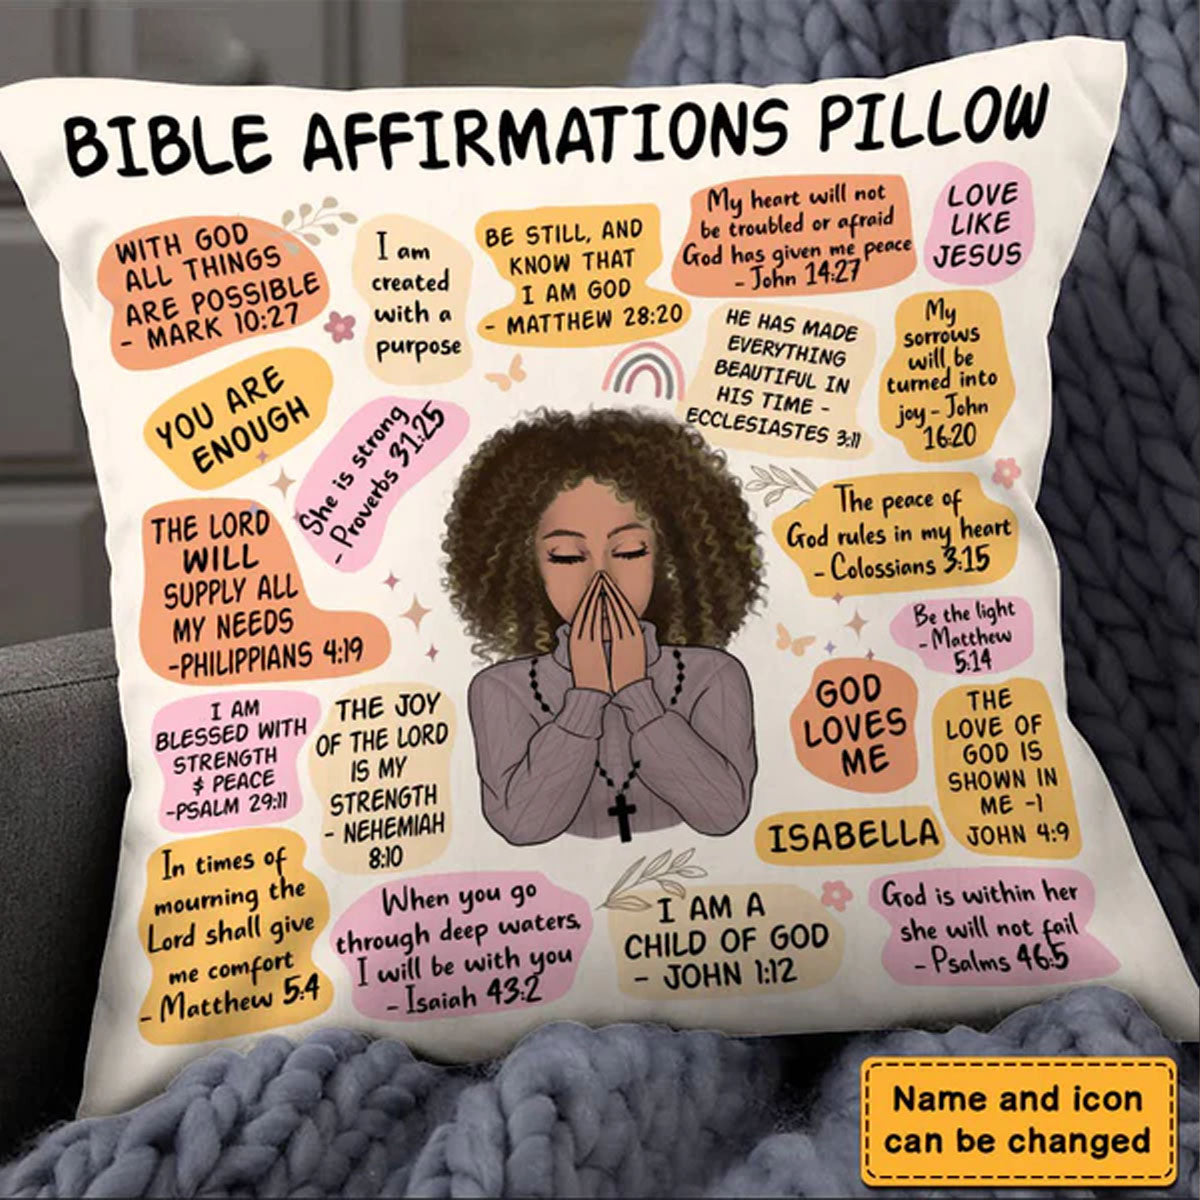 BIBLE AFFIRMATIONS PILLOW
WITH GOD
ALL THINGS
ARE POSSIBLE
- MARK 10:27
I am
created
with a
purpose
BE STILL, AND
KNOW THAT
I AM GOD
- MATTHEW 28:20
My heart will not
be troubled or afraid
God has given me peace
- John 14:27
LOVE
LIKE
JESUS
YOU ARE
ENOUGH
She is strong
- Proverbs 31:25
HE HAS MADE
EVERYTHING
BEAUTIFUL IN
HIS TIME -
ECCLESIASTES 3:11
My
sorrows
will be
turned into
joy - John
16:20
THE LORD
WILL
SUPPLY ALL
MY NEEDS
-PHILIPPIANS 4:19
The peace of
God rules in my heart
- Colossians 3:15
Be the light
- Matthew
5:14
I AM
BLESSED WITH
STRENGTH
& PEACE
-PSALM 29:11
THE JOY
OF THE LORD
IS MY
STRENGTH
- NEHEMIAH
8:10
GOD
LOVES
ME
THE
LOVE OF
GOD IS
SHOWN IN
ME -1
JOHN 4:9
ISABELLA
In times of
mourning the
Lord shall give
me comfort
- Matthew 5:4
When you go
through deep waters,
I will be with you
- Isaiah 43:2
I AM A
CHILD OF GOD
- JOHN 1:12
God is within her
she will not fail
- Psalms 46:5
Name and icon
can be changed